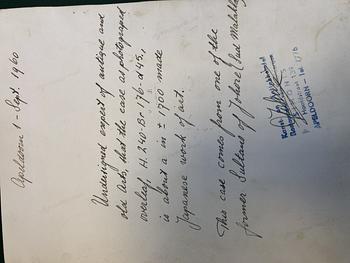 Apeldoorn 1 - Sept. 1960
Undersigned expert of antique and
old Arts, that the case as photographed
overleaf, H. 240 - Br. 176 - d 45,
is about a in ± 1700 made
Japanese work of art.
This case comes from one of the
former Sultans of Johore (
APELDOORN - Tel.